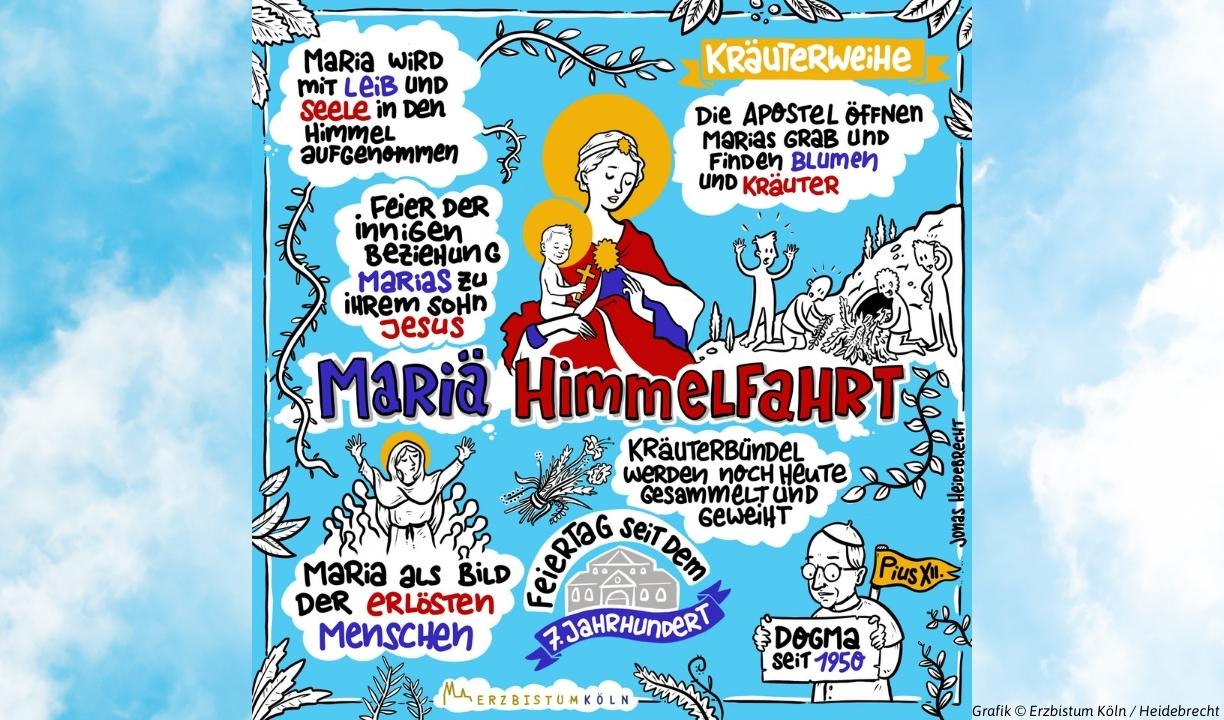 Maria wird
mit Leib und
Seele in den
Himmel
aufgenommen
Kräuterweihe
Die Apostel öffnen
Marias Grab und
finden Blumen
und Kräuter
Feier der
innigen
Beziehung
Marias zu
ihrem Sohn
Jesus
Mariä Himmelfahrt
Kräuterbündel
werden noch heute
gesammelt und
geweiht
Jonas Heidebrecht
Maria als Bild
der erlösten
Menschen
Feiertag seit dem
7. Jahrhundert
Pius XII.
Dogma
seit 1950
ERZBISTUMKÖLN
Grafik © Erzbistum Köln / Heidebrecht